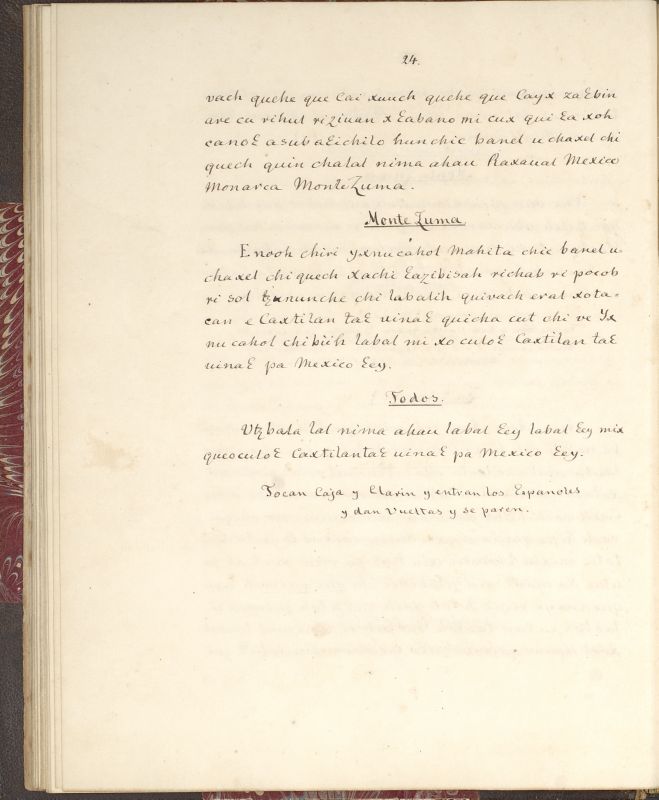 24.
vach quehe que Cai xuuch quehe que Cayx zaƐbin
are cu rihul riziuan xƐabano mi cux qui Ɛa xoh
canoƐ asubaƐichilo hunchic banel u chaxel chi
quech quin chalal nima ahau Raxaual Mexico
Monarca MonteZuma.
Monte Zuma
Enooh chiri yxnucáhol Mahita chic banel u-
chaxel chiquech Xachi Ɛazibisah richab ri pocob
ri sol tzununche chi labalih quivach erat xota=
can e Caxtilan taƐ uinaƐ quicha cut chi ve Yx
nu cahol chibiih labal mi xo culoƐ Caxtilan taƐ
uinaƐ pa Mexico Ɛey.
Todos.
Utzbala lal nima ahau labal Ɛey labal Ɛey mix
queoculoƐ CaxtilantaƐ uinaƐ pa Mexico Ɛey.
Tocan Caja y Clarin y entran los Españoles
y dan Vueltas y se paren.